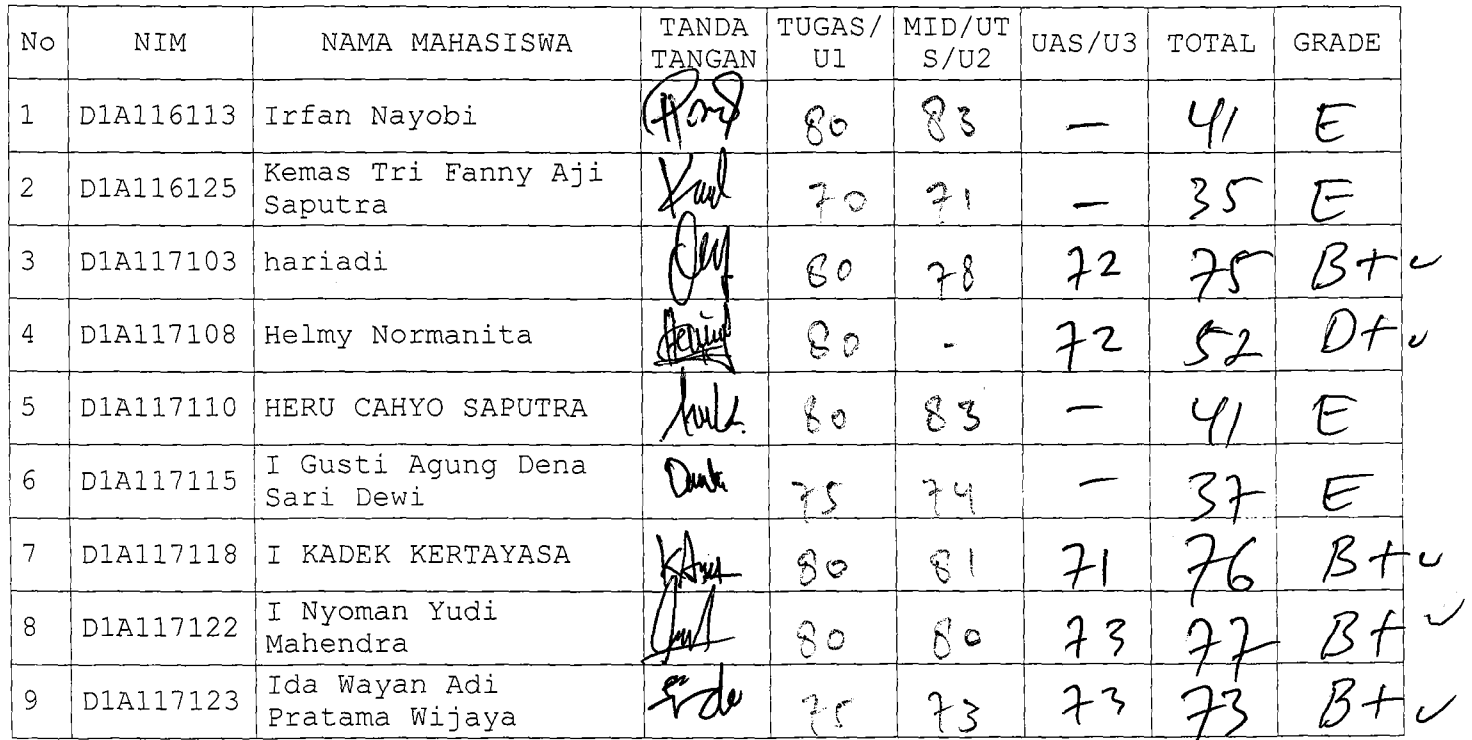 No NIM NAMA MAHASISWA TANDA TANGAN TUGAS/ U1 MID/UT S/U2 UAS/U3 TOTAL GRADE
1 D1A116113 Irfan Nayobi 80 83 — 41 E
2 D1A116125 Kemas Tri Fanny Aji Saputra 70 71 — 35 E
3 D1A117103 hariadi 80 78 72 75 B+
4 D1A117108 Helmy Normanita 80 - 72 52 D+
5 D1A117110 HERU CAHYO SAPUTRA 80 83 — 41 E
6 D1A117115 I Gusti Agung Dena Sari Dewi 75 74 — 37 E
7 D1A117118 I KADEK KERTAYASA 80 81 71 76 B+
8 D1A117122 I Nyoman Yudi Mahendra 80 80 73 77 B+
9 D1A117123 Ida Wayan Adi Pratama Wijaya 75 73 73 73 B+